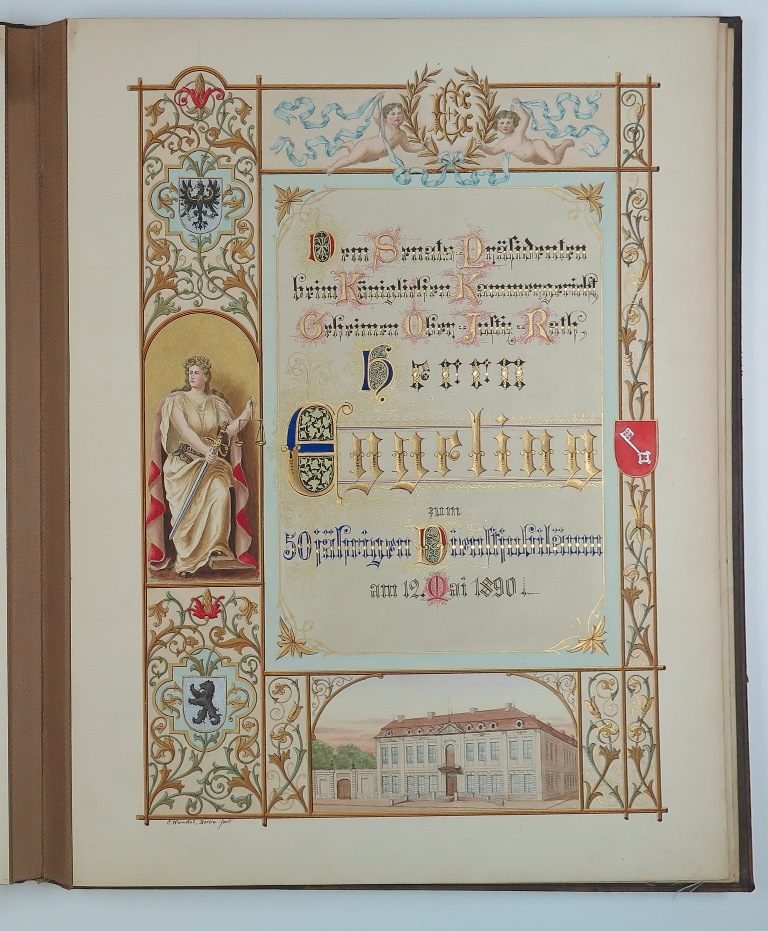 Dem Senats-Präsidenten
beim Königlichen Kammergericht
Geheimen Ober-Justiz-Rath,
Herrn
Eggeling
zum
50jährigen Dienstjubiläum
am 12. Mai 1890.
Berlin fecit